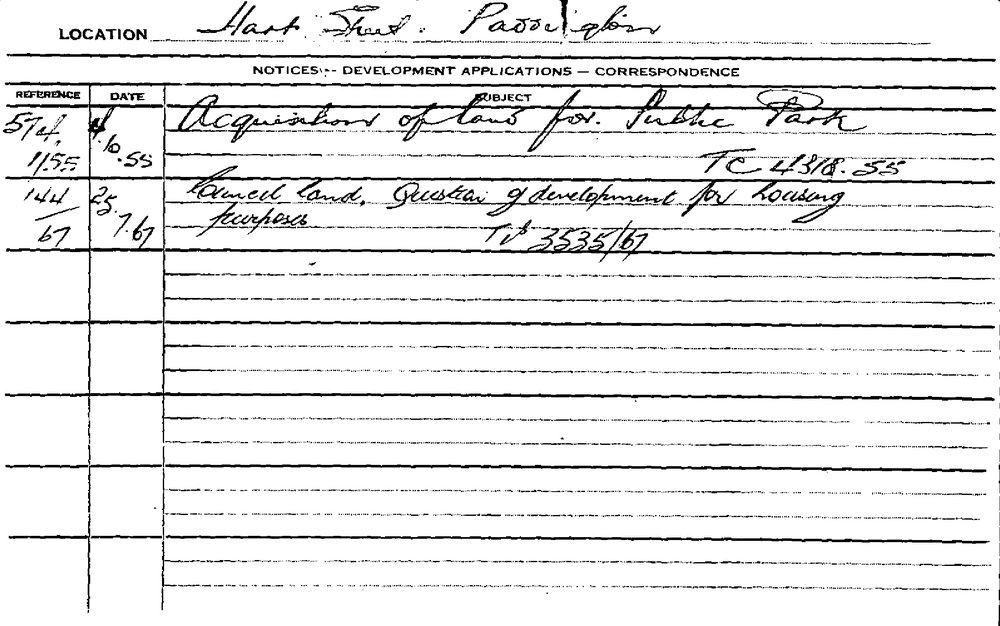 LOCATION Hart Street. Paddington
NOTICES - DEVELOPMENT APPLICATIONS — CORRESPONDENCE
REFERENCE DATE SUBJECT
574. 4. Acquisition of land for. Public Park
1155 10.55 TC 4318.55
144 25 Council land. Question of development for housing
purposes
67 7.67 3535/67